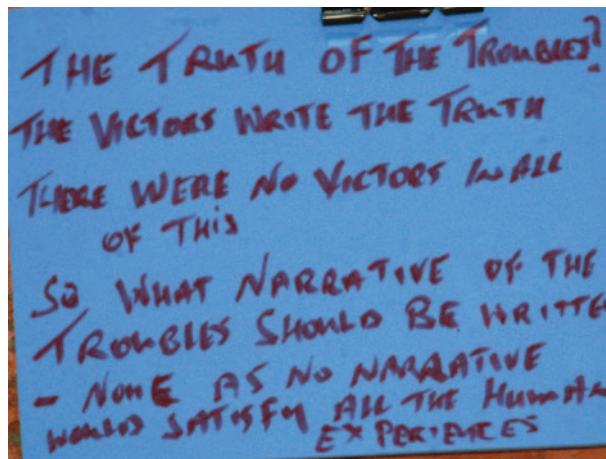 THE TRUTH OF THE TROUBLES?
THE VICTORS WRITE THE TRUTH
THERE WERE NO VICTORS IN ALL
OF THIS
SO WHAT NARRATIVE OF THE
TROUBLES SHOULD BE WRITTE
- NONE AS NO NARRATIVE
WOULD SATISFY ALL THE HUMAN
EXPERIENCES